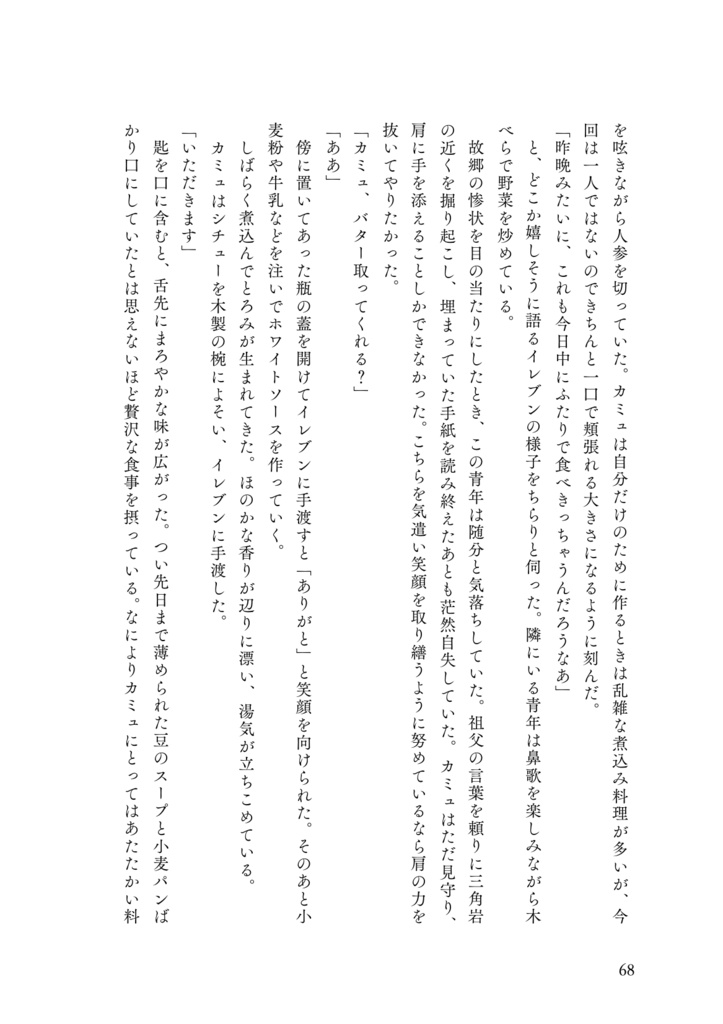 を呟きながら人参を切っていた。カミュは自分だけのために作るときは乱雑な煮込み料理が多いが、今
回は一人ではないのできちんと一口で頬張れる大きさになるように刻んだ。
「昨晩みたいに、これも今日中にふたりで食べきっちゃうんだろうなあ」
と、どこか嬉しそうに語るイレブンの様子をちらりと伺った。隣にいる青年は鼻歌を楽しみながら木
べらで野菜を炒めている。
故郷の惨状を目の当たりにしたとき、この青年は随分と気落ちしていた。祖父の言葉を頼りに三角岩
の近くを掘り起こし、埋まっていた手紙を読み終えたあとも茫然自失していた。カミュはただ見守り、
肩に手を添えることしかできなかった。こちらを気遣い笑顔を取り繕うように努めているなら肩の力を
抜いてやりたかった。
「カミュ、バター取ってくれる？」
「ああ」
傍に置いてあった瓶の蓋を開けてイレブンに手渡すと「ありがと」と笑顔を向けられた。そのあと小
麦粉や牛乳などを注いでホワイトソースを作っていく。
しばらく煮込んでとろみが生まれてきた。ほのかな香りが辺りに漂い、湯気が立ちこめている。
カミュはシチューを木製の椀によそい、イレブンに手渡した。
「いただきます」
匙を口に含むと、舌先にまろやかな味が広がった。つい先日まで薄められた豆のスープと小麦パンば
かり口にしていたとは思えないほど贅沢な食事を摂っている。なによりカミュにとってはあたたかい料
68